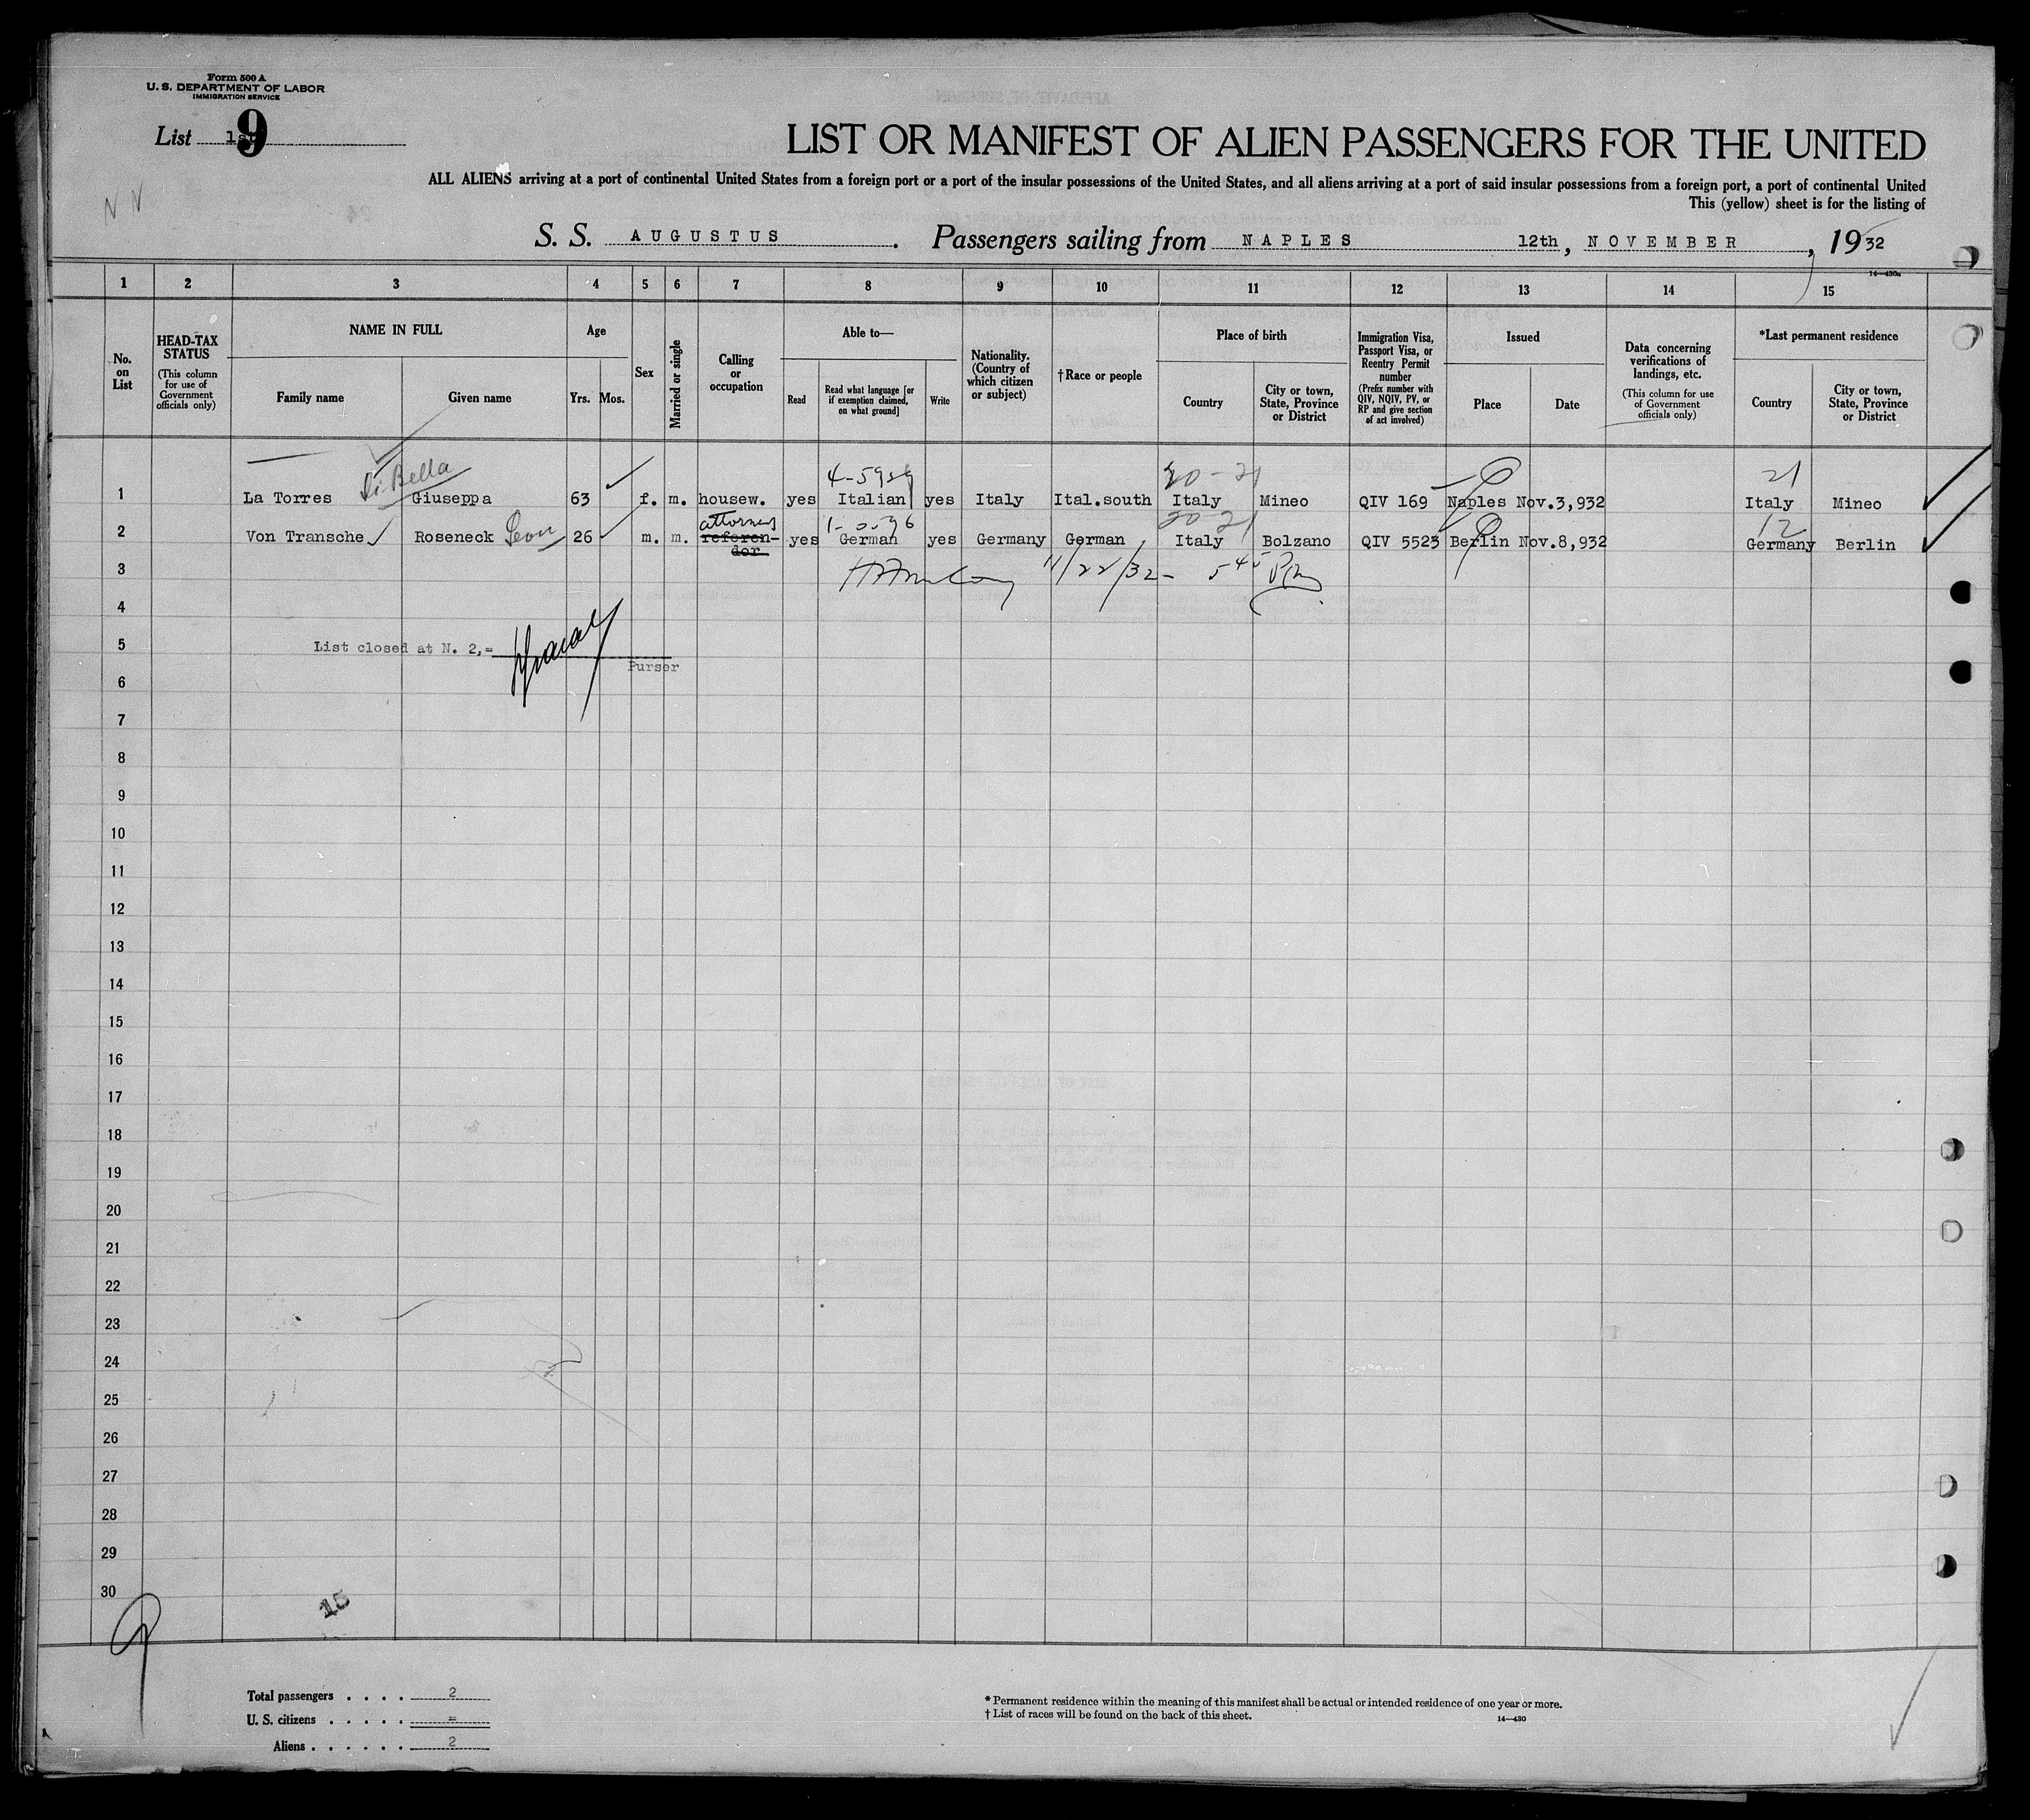 Form 500 A
U. S. DEPARTMENT OF LABOR
IMMIGRATION SERVICE
List 9
LIST OR MANIFEST OF ALIEN PASSENGERS FOR THE UNITED
ALL ALIENS arriving at a port of continental United States from a foreign port or a port of the insular possessions of the United States, and all aliens arriving at a port of said insular possessions from a foreign port, a port of continental United
This (yellow) sheet is for the listing of
S. S. AUGUSTUS. Passengers sailing from NAPLES 12th, NOVEMBER, 1932
14—430a
1 2 3 4 5 6 7 8 9 10 11 12 13 14 15
No. on List
HEAD-TAX STATUS (This column for use of Government officials only)
NAME IN FULL
Family name
Given name
Age
Yrs. Mos.
Sex
Married or single
Calling or occupation
Able to—
Read
Read what language [or if exemption claimed, on what ground]
Write
Nationality. (Country of which citizen or subject)
†Race or people
Place of birth
Country
City or town, State, Province or District
Immigration Visa, Passport Visa, or Reentry Permit number (Prefix number with QIV, NQIV, PV, or RP and give section of act involved)
Issued
Place
Date
Data concerning verifications of landings, etc. (This column for use of Government officials only)
*Last permanent residence
Country
City or town, State, Province or District
Di Bella 4-5929 20-21 21
1 La Torres Giuseppa 63 f. m. housew. yes Italian yes Italy Ital.south Italy Mineo QIV 169 Naples Nov.3,932 Italy Mineo
attorney 20-21 12
2 Von Transche Roseneck Leon 26 m. m. referen-dor yes German yes Germany German Italy Bolzano QIV 5523 Berlin Nov.8,932 Germany Berlin
3 11/22/32- 5 45 PM
4
5 List closed at N. 2,=
Purser
6
7
8
9
10
11
12
13
14
15
16
17
18
19
20
21
22
23
24
25
26
27
28
29
30
15
Total passengers . . . . 2
U. S. citizens . . . . . =
Aliens . . . . . . 2
* Permanent residence within the meaning of this manifest shall be actual or intended residence of one year or more.
† List of races will be found on the back of this sheet.
14—430